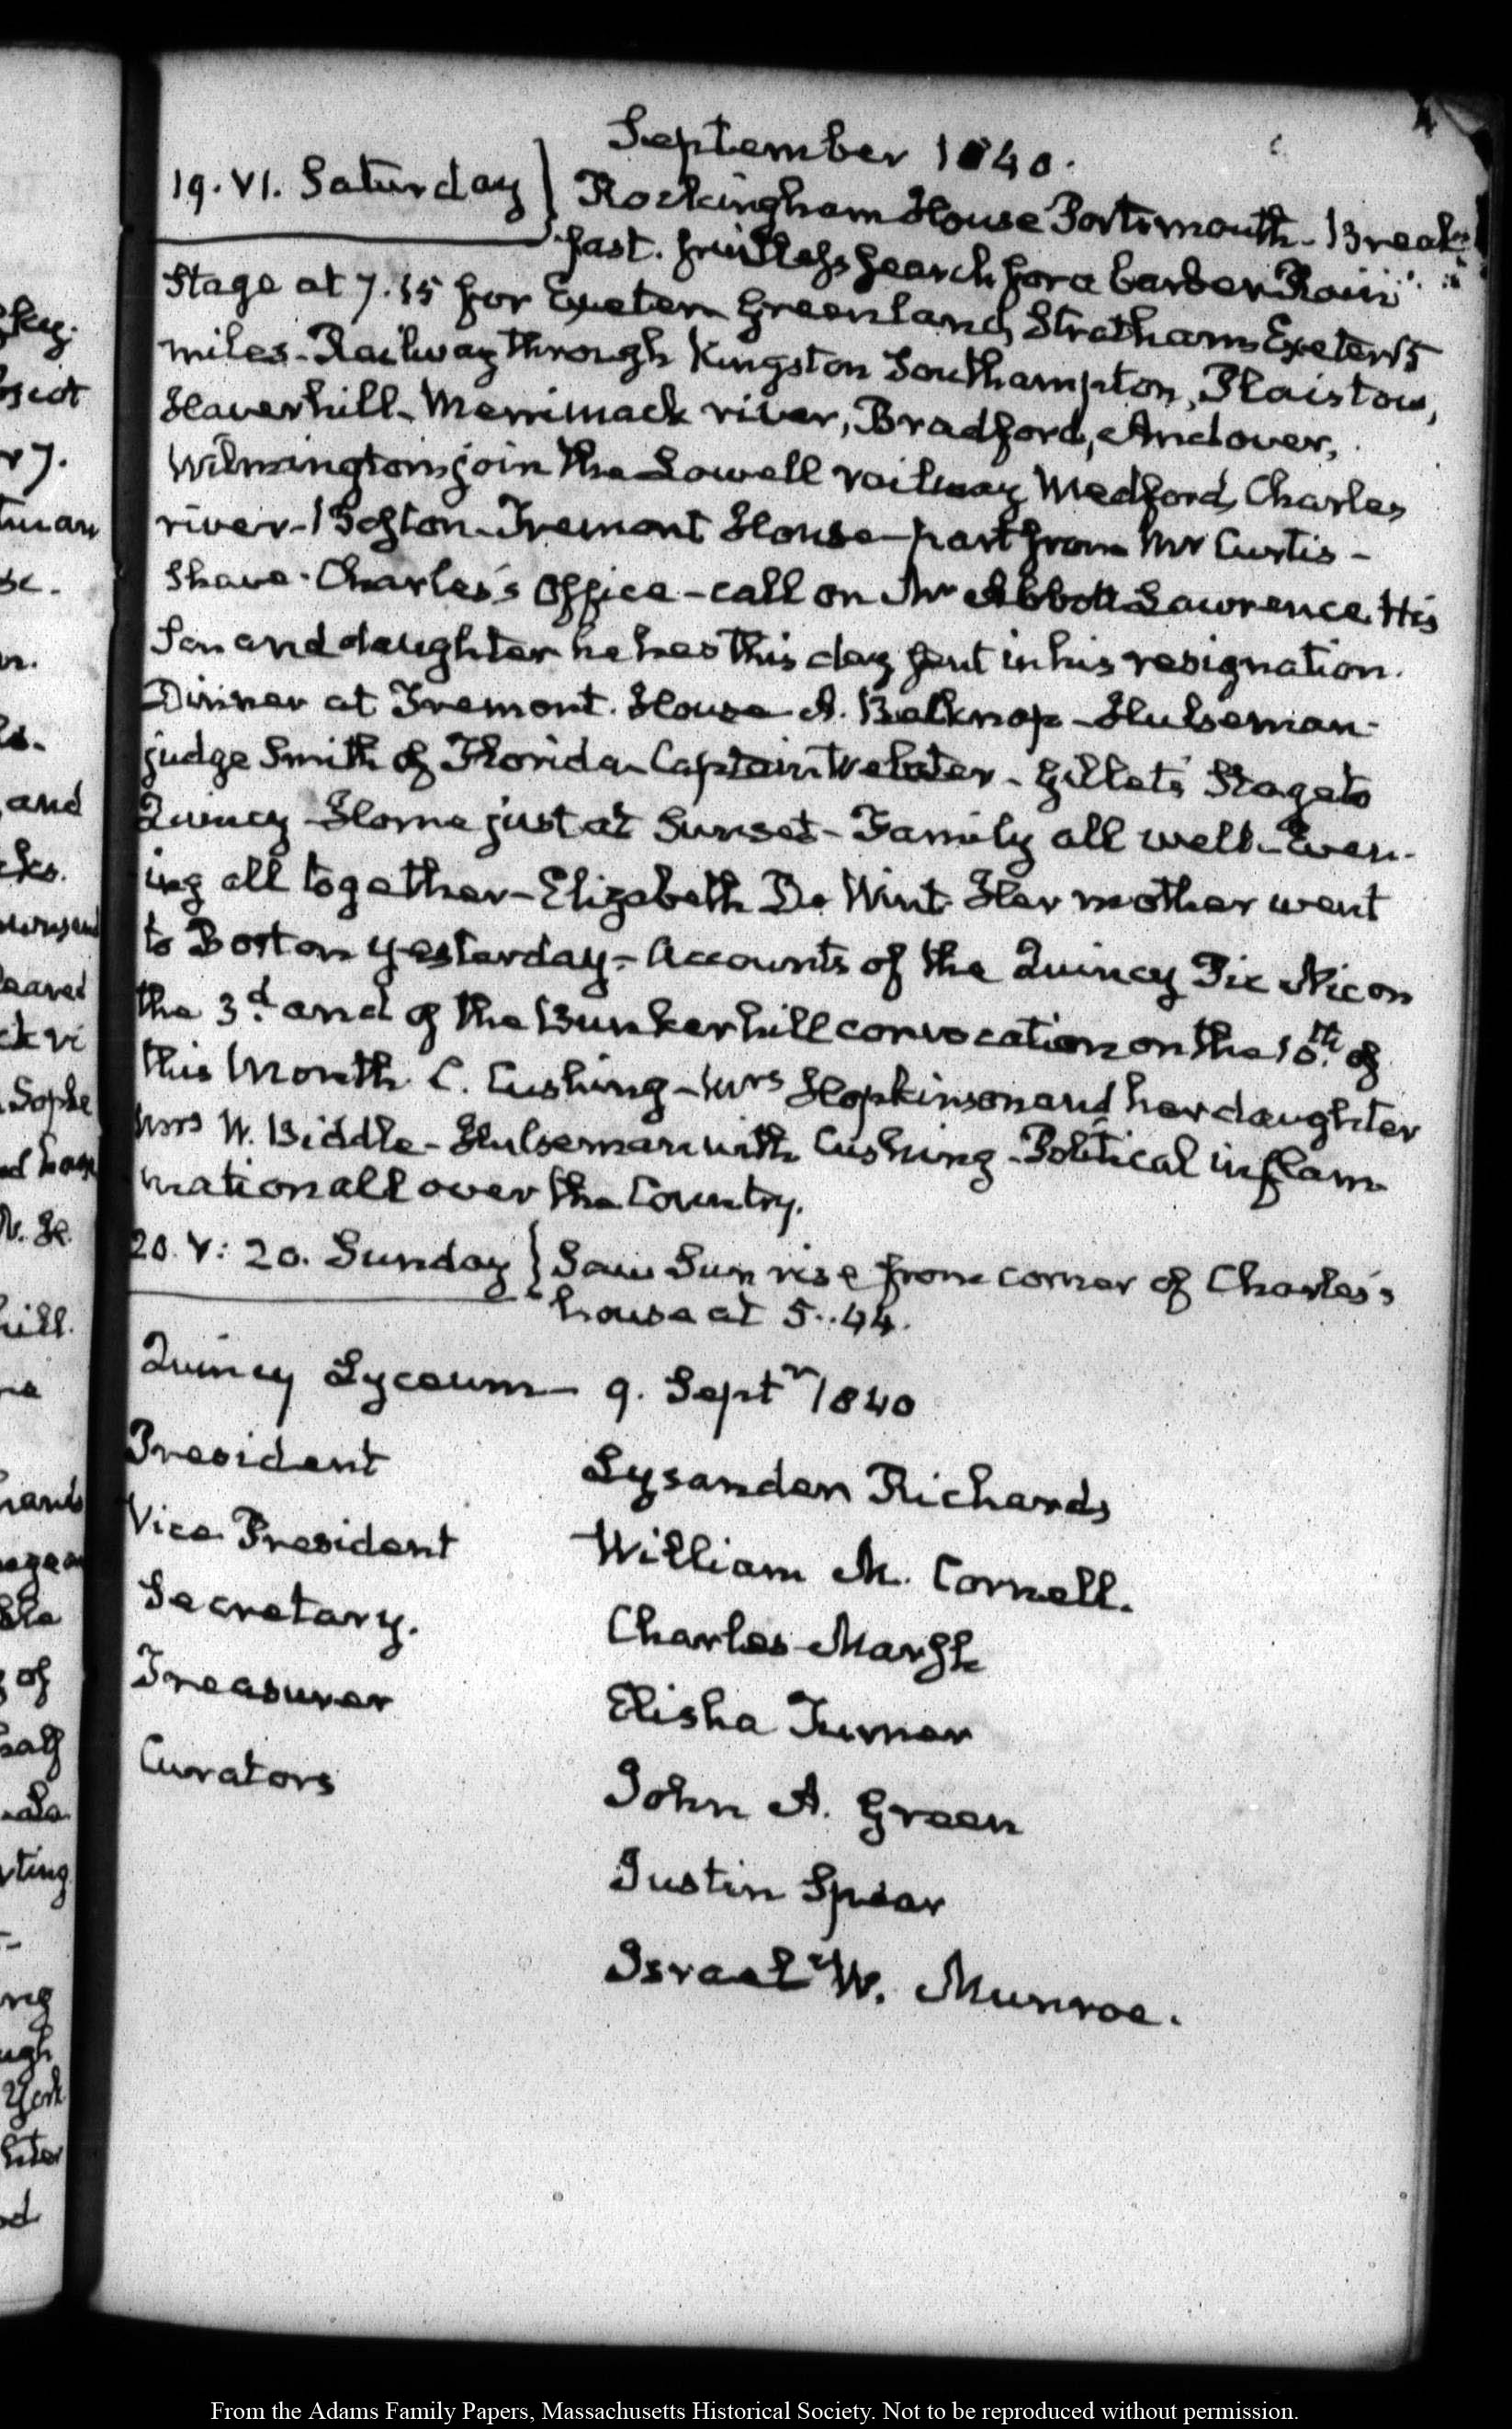 September 1840.
19. VI. Saturday } Rockingham House Portsmouth - Break-
fast. fruitless search for a barber Rain
Stage at 7.15 for Exeter Greenland, Stratham Exeter 15
miles - Railway through Kingston Southampton, Plaistow,
Haverhill - Merrimack river, Bradford, Andover,
Wilmington join the Lowell railway Medford, Charles
river - Boston - Tremont House - part from Mr Curtis -
Shave - Charles's Office - call on Mr Abbott Lawrence. His
Son and daughter he has this day sent in his resignation.
Dinner at Tremont House A. Belknap - Hulseman -
judge Smith of Florida - Captain Webster - Gillet's Stage to
Quincy - Home just at Sunset - Family all well - Even-
ing all together - Elizabeth De Wint Her mother went
to Boston yesterday - Accounts of the Quincy Pic Nic on
the 3d. and of the Bunkerhill convocation on the 10th. of
this Month C. Cushing - Mrs Hopkinson and her daughter
Mrs W. Biddle - Hulseman with Cushing - Political inflam
mation all over the Country.
20. V: 20. Sunday } Saw Sun rise from corner of Charles's
house at 5..44.
Quincy Lyceum - 9. Septr 1840
President Lysander Richards
Vice President William M. Cornell.
Secretary. Charles Marsh
Treasurer Elisha Turner
Curators John A. Green
Justin Spear
Israel W. Munroe.
sky.
ject
r 7.
man
se.
ls.
and
Sophe
N. Se
hill
hands
of
half
ting
ng
ugh
York
hter
od
From the Adams Family Papers, Massachusetts Historical Society. Not to be reproduced without permission.